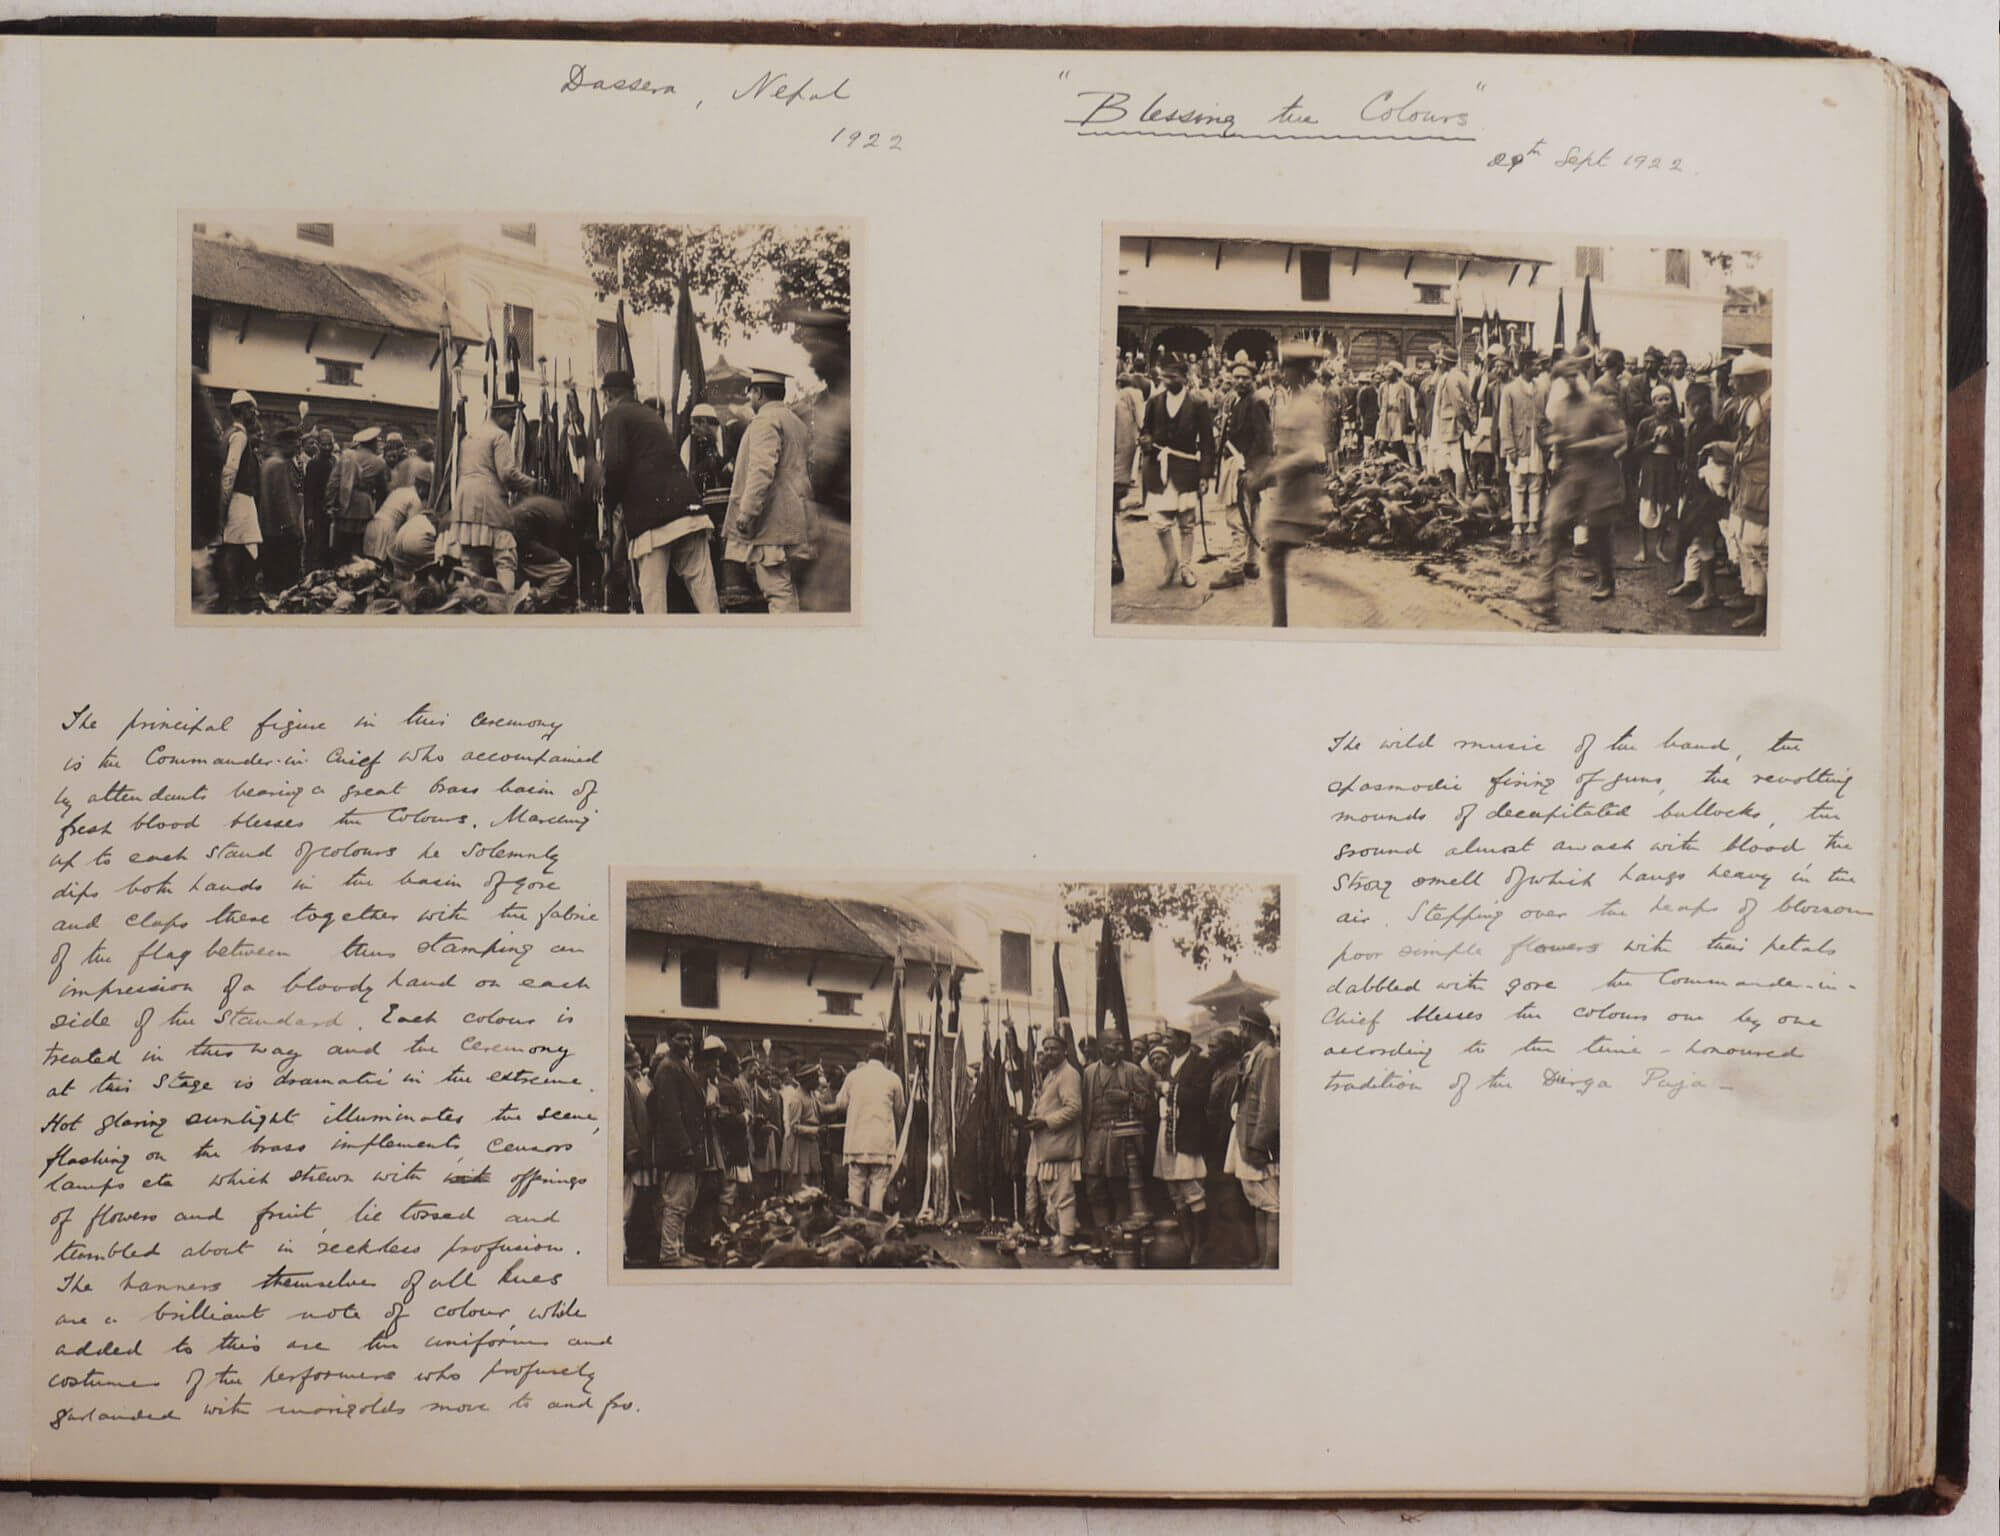 Dassera, Nepal
1922
"Blessing the Colours"
29th Sept 1922.
The principal figure in this ceremony
is the Commander-in-Chief who accompained
by attendants bearing a great brass basin of
fresh blood blesses the Colours. Marching
up to each stand of colours he solemnly
dips both hands in the basin of gore
and claps these together with the fabric
of the flag between thus stamping an
impression of a bloody hand on each
side of the Standard. Each colour is
treated in this way and the ceremony
at this stage is dramatic in the extreme.
Hot glaring sunlight illuminates the scene,
flashing on the brass implements, censors
lamps etc which strewn with offerings
of flowers and fruit, lie tossed and
tumbled about in reckless profusion.
The banners themselves of all hues
are a brilliant note of colour, while
added to this are the uniforms and
costumes of the performers who profusely
garlanded with marigolds move to and fro.
The wild music of the band, the
spasmodic firing of guns, the revolting
mounds of decapitated bullocks, the
ground almost awash with blood the
strong smell of which hangs heavy in the
air. Stepping over the heaps of blossom
poor simple flowers with their petals
dabbled with gore the Commander-in-
Chief blesses the colours one by one
according to the time-honoured
tradition of the Durga Puja -